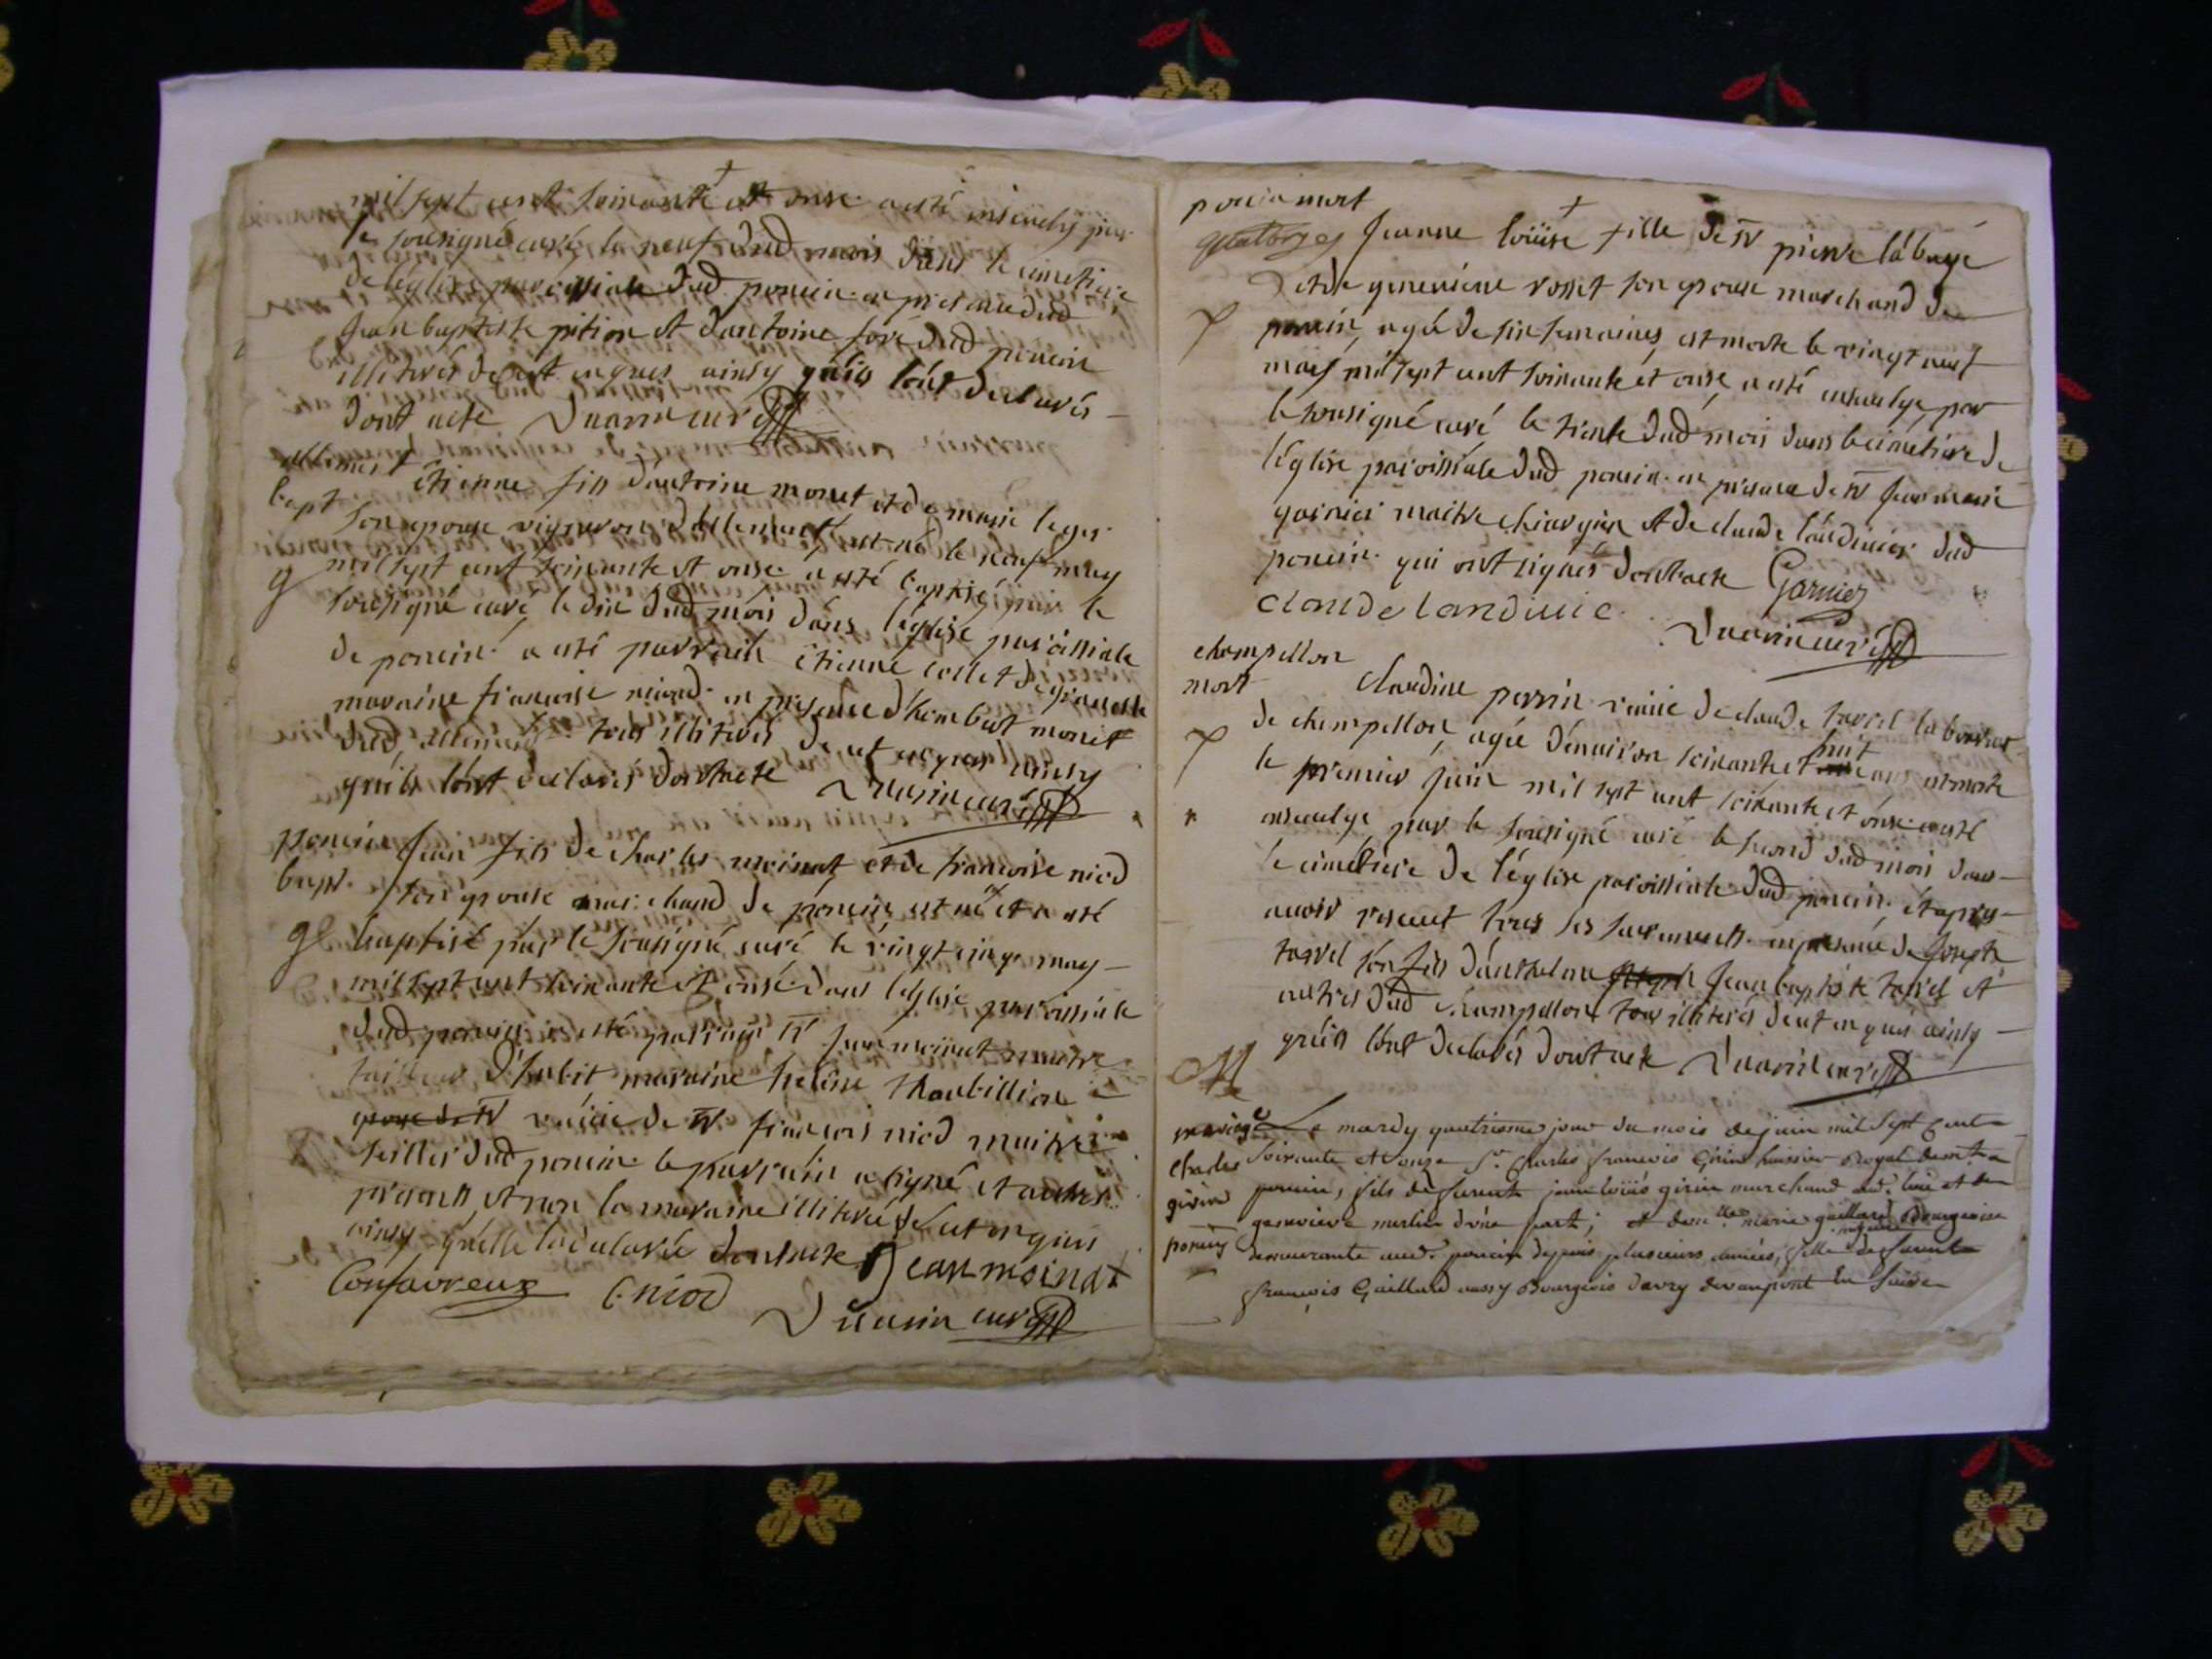 mil sept cent soixante et onse a esté ensevely par
le sousigné curé le neuf dud mois dans le cimetiere
de l'église paroissiale dud poncin en presence dud
Jean baptiste pition et d'antoine foré dud poncin
illiterés de cet enquis ainsy qu'ils l'ont declarés
dont acte curé
allement étienne fils d'antoine monet et de marie leger
bapt son epouse vigneron d'allement est né le neuf may
mil sept cent soixante et onse a esté baptisé par le
sousigné curé le dix dud mois dans l'église paroissiale
de poncin a esté parrain étienne collet de
maraine francoise niod en presence d'humbert monet
dud allement tous illiterés de cet enquis ainsy
qu'ils l'ont declarés dont acte curé
poncin Jean fils de charles moinat et de francoise niod
bapt son epouse marchand de poncin est né et a esté
baptisé par le sousigné curé le vingt cinq may
mil sept cent soixante et onse dans l'église paroissiale
dud poncin a esté parrain sr Jean moinat maitre
tailleur d'habit maraine helene
veuve de sr francois niod maitre
sellier dud poncin le parrain a signé et autres
presents et non la maraine illiterée de cet enquis
ainsy qu'elle l'a declarée dont acte Jean moinat
Confavreux C niod
curé
poncin mort
Jeanne loüise fille de sr pierre labaye
et de genevieve rosset son epouse marchand de
poncin, agée de six semaines, est morte le vingt neuf
may mil sept cent soixante et onse, a esté ensevelye par
le sousigné curé le trente dud mois dans le cimetiere de
l'église paroissiale dud poncin en presence de sr Jean marie
garnier maitre chirurgien et de claude landuier dud
poncin qui ont signés dont acte Garnier
claude landuie
curé
champellon
mort Claudine perrin veuve de claude tarrel laboureur
de champellon, agée d'environ soixante et huit ans est morte
le premier juin mil sept cent soixante et onse a esté
ensevelye par le sousigné curé le second dud mois dans
le cimetiere de l'église paroissiale dud poncin, et apres
avoir receut tous les sacrements en presence de Joseph
tarrel son fils d'anthelme Jean baptiste tarrel et
autres dud champellon tous illiterés de cet enquis ainsy
qu'ils l'ont declarés dont acte curé
M
mariage Le mardy quatrieme jour du mois de juin mil sept cent
Charles soixante et onze Sr. Charles françois Girin huissier Royal demt. a
girin poncin, fils de furent jean loüis girin marchand aud. lieu et de
poncin genevieve merlin d'une part; et demlle. marie gaillard Bourgeoise
demeurante aud. poncin depuis plusieurs années, fille de furent
françois Gaillard aussy Bourgeois en suisse